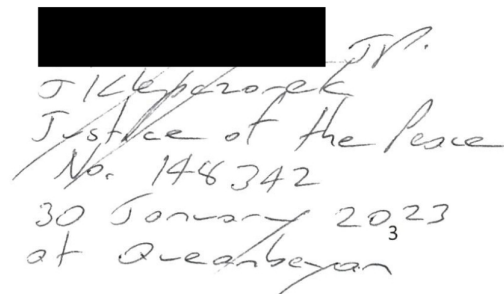 JP.
J Klepczarek
Justice of the Peace
No. 148342
30 January 2023
3
at Queanbeyan